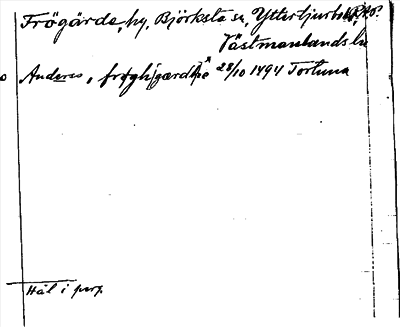 Frögärde, by, Björksta sn, Yttertjurbo
Västmanlands län
o Anders, frøghigærdhe 28/10 1494 Tortuna
Hål i perg.